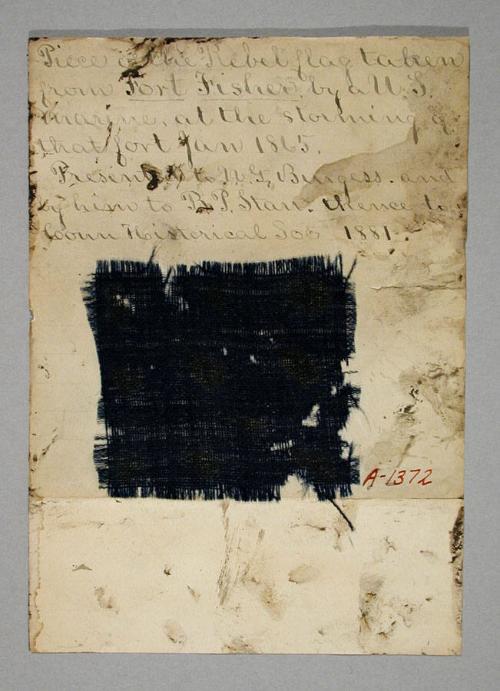 Piece of the Rebel flag taken
from Fort Fisher by a U.S.
marine, at the storming of
that fort Jan 1865.
Presented to N.G. Burgess. and
by him to B.P. Stan. thence to
Conn Historical Soc 1881.
A-1372